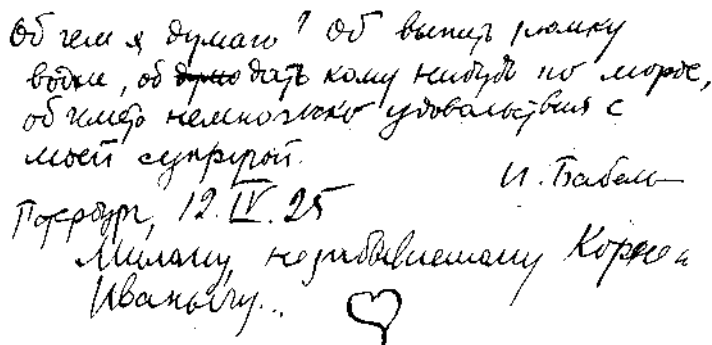 Об чем я думаю? Об выпить рюмку
водки, об дать кому нибудь по морде,
об иметь немножко удовольствия с
моей супругой.
И. Бабель
Петербург, 12.IV.25
Милому, незабываемому
Иванычу...